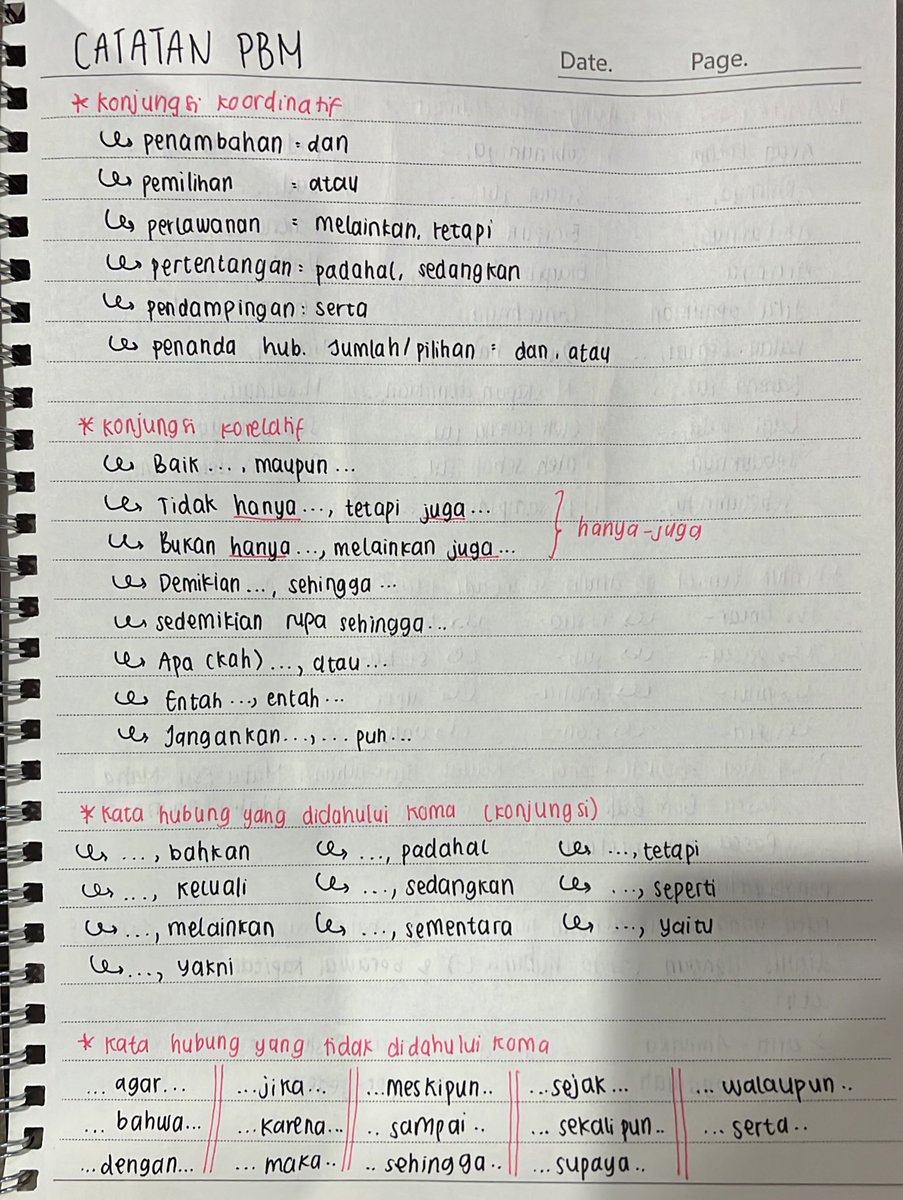 CATATAN PBM
Date. Page.
* Konjungsi koordinatif
↪ penambahan = dan
↪ pemilihan = atau
↪ perlawanan = melainkan, tetapi
↪ pertentangan = padahal, sedangkan
↪ pendampingan = serta
↪ penanda hub. Jumlah/pilihan = dan, atau
* Konjungsi korelatif
↪ Baik ..., maupun ...
↪ Tidak hanya ..., tetapi juga ...
↪ Bukan hanya ..., melainkan juga ...
} hanya-juga
↪ Demikian ..., sehingga ...
↪ sedemikian rupa sehingga ...
↪ Apa (kah) ..., atau ...
↪ Entah ..., entah ...
↪ Jangankan ..., ... pun ...
* Kata hubung yang didahului koma (konjungsi)
↪ ..., bahkan ↪ ..., padahal ↪ ..., tetapi
↪ ..., kecuali ↪ ..., sedangkan ↪ ..., seperti
↪ ..., melainkan ↪ ..., sementara ↪ ..., yaitu
↪ ..., yakni
* Kata hubung yang tidak didahului koma
... agar ... ... jika ... ... meskipun .. ... sejak ... ... walaupun ..
... bahwa ... ... karena ... .. sampai .. ... sekali pun .. ... serta ..
... dengan ... ... maka .. .. sehingga .. ... supaya ..